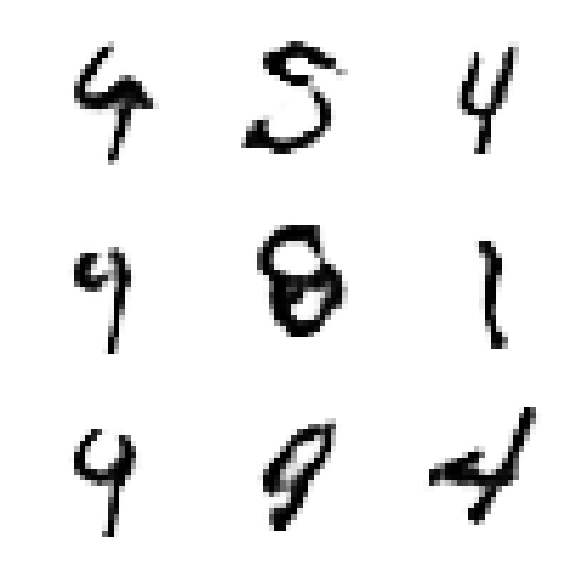 4 5 4
9 8 1
4 8 4